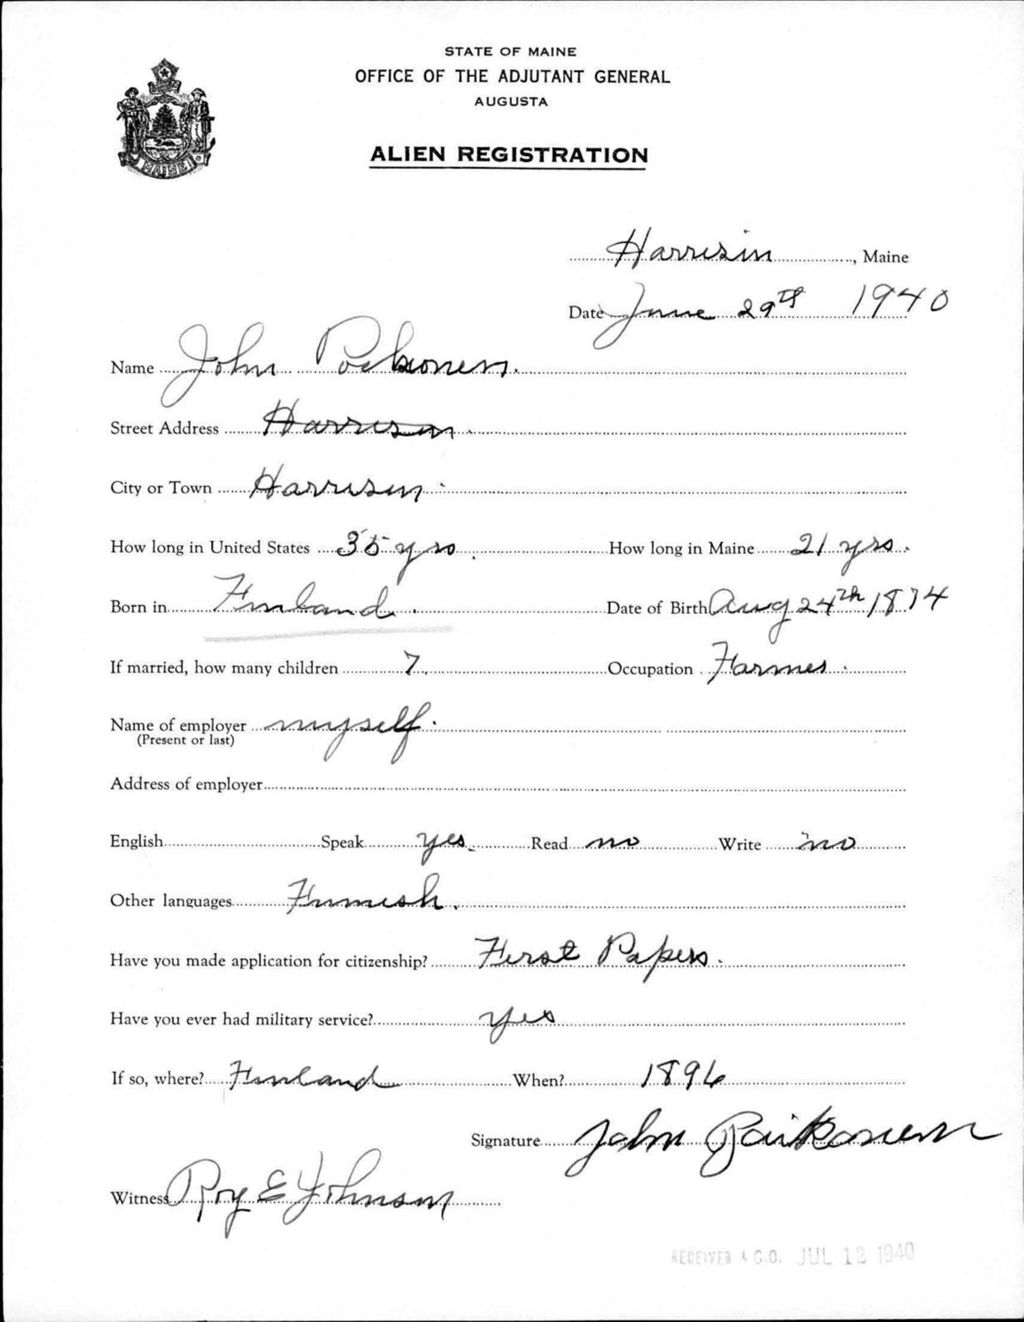 STATE OF MAINE
OFFICE OF THE ADJUTANT GENERAL
AUGUSTA
ALIEN REGISTRATION
MAINE
Harrison, Maine
Date June 29th 1940
Name John
Street Address Harrison.
City or Town Harrison.
How long in United States 35 yrs. How long in Maine 21 yrs.
Born in Finland. Date of Birth Aug 24th 1874
If married, how many children 7. Occupation Farmer.
Name of employer myself.
(Present or last)
Address of employer
English Speak yes Read no Write no
Other languages Finnish.
Have you made application for citizenship? First Papers.
Have you ever had military service? Yes
If so, where? Finland When? 1896
Signature John
Witness Roy E Johnson
RECEIVED A.G.O. JUL 12 1940